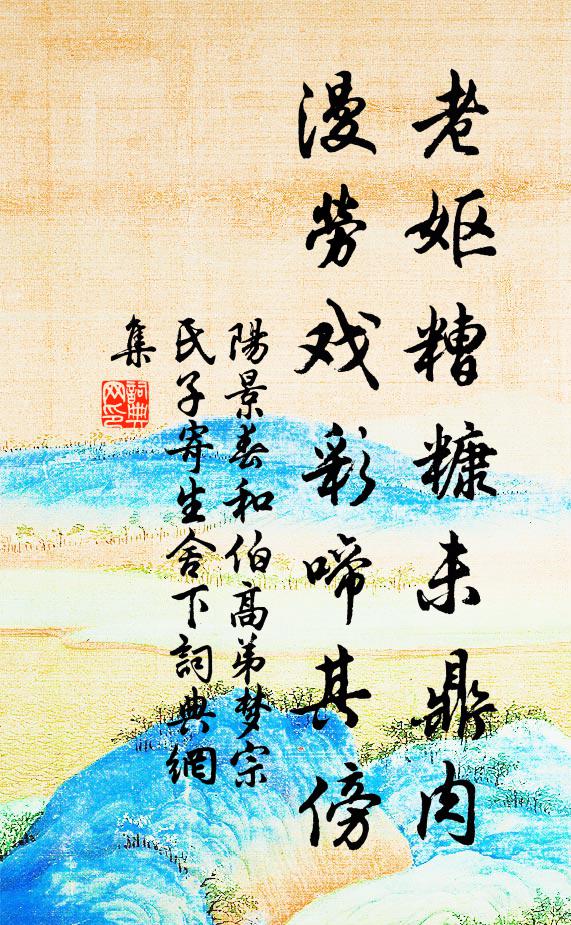 老妪糟糠未鼎肉
漫勞戏彩啼其傍
陽景春和伯高弟梦宗
氏子寄生舍下詞典網
集
詞典
网印